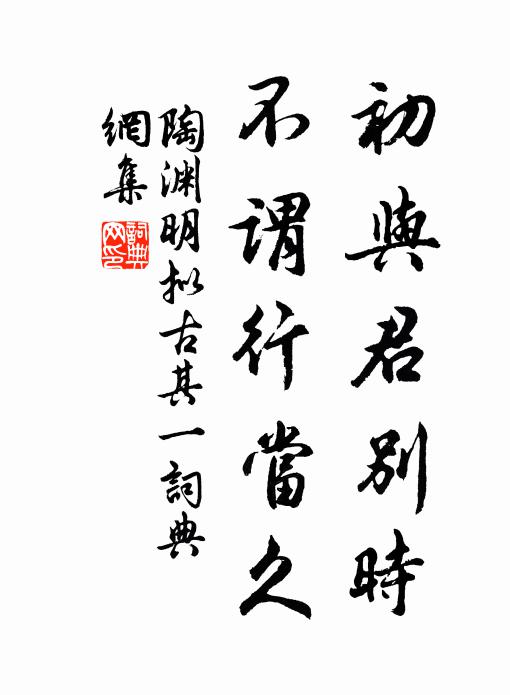 初與君別時
不謂行當久
陶渊明拟古其一詞典
網集
詞典
网印